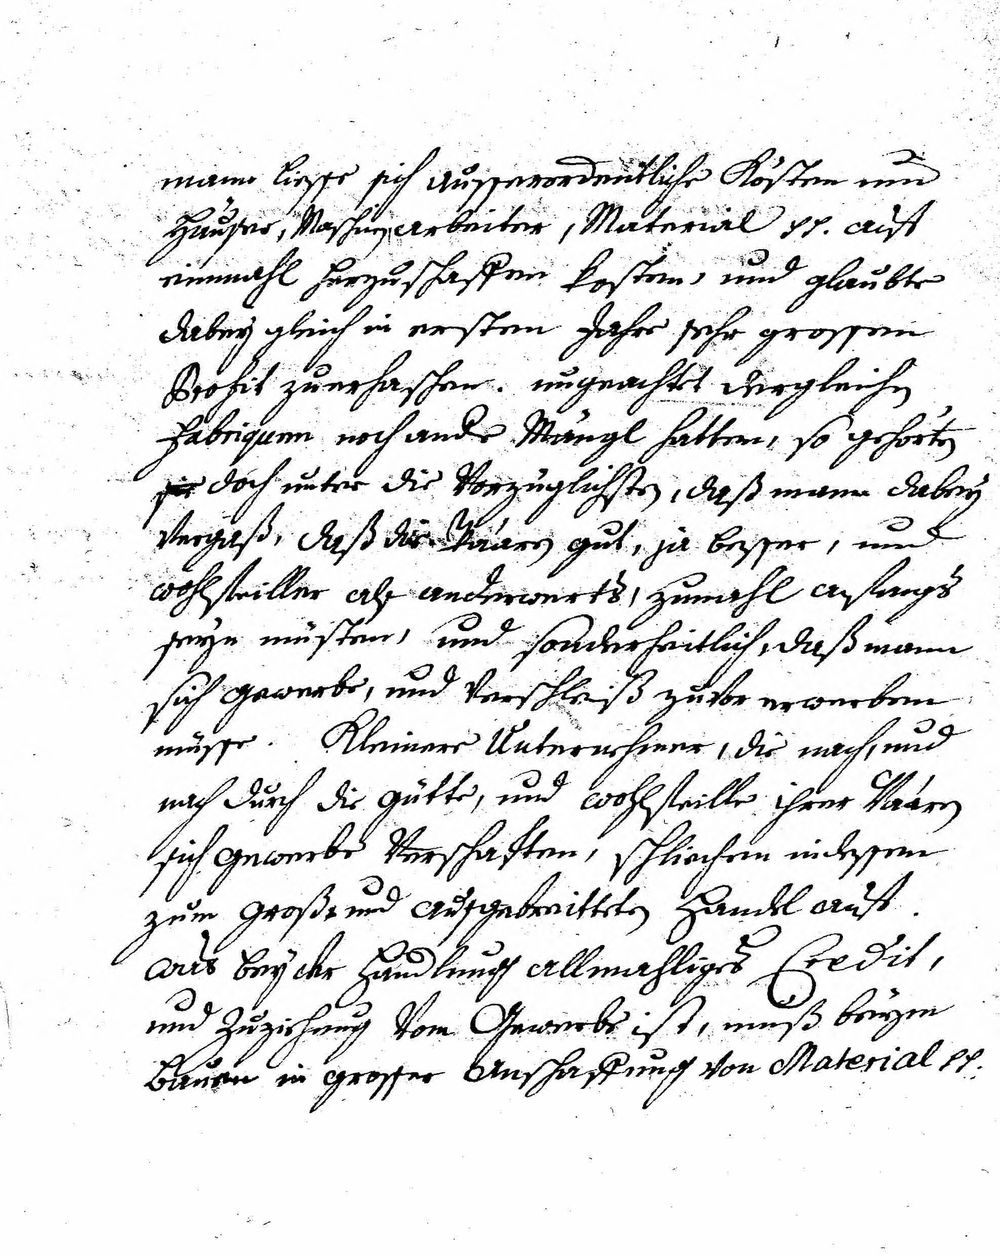 mann liesse sich ausserordentliche Kösten um
Häuser, Maschinen, arbeiter, Material pp. auf
einmahl herzuschaffen kosten, und glaubte
dabey gleich in ersten Jahre sehr grossen
Profit zuerhaschen. ungeachtet dergleichen
Fabriquen noch ande Mängl hatten, so gehörten
sie doch unter die Vorzüglichsten, daß mann dabey
Vergaß, daß die Waaren gut, ja besser, und
wohlfeiller als anderwerts, zumahl anfangs
seyn müsten, und sonderheitlich, daß mann
sich Gewerbe, und Verschleiß zuvor erwerben
müsse. Kleinere Unternehmer, die nach, und
nach durch die gütte, und wohlfeille ihrer Waaren
sich Gewerbe Verschaften, schliechen indessen
zum Große und ausgebreitteten Handel auf.
was bey der Handlung allmahliges Credit,
und Zuziehung Vom Gewerbe ist, muß beym
Bauen in grosser Anschaffung von Material pp.